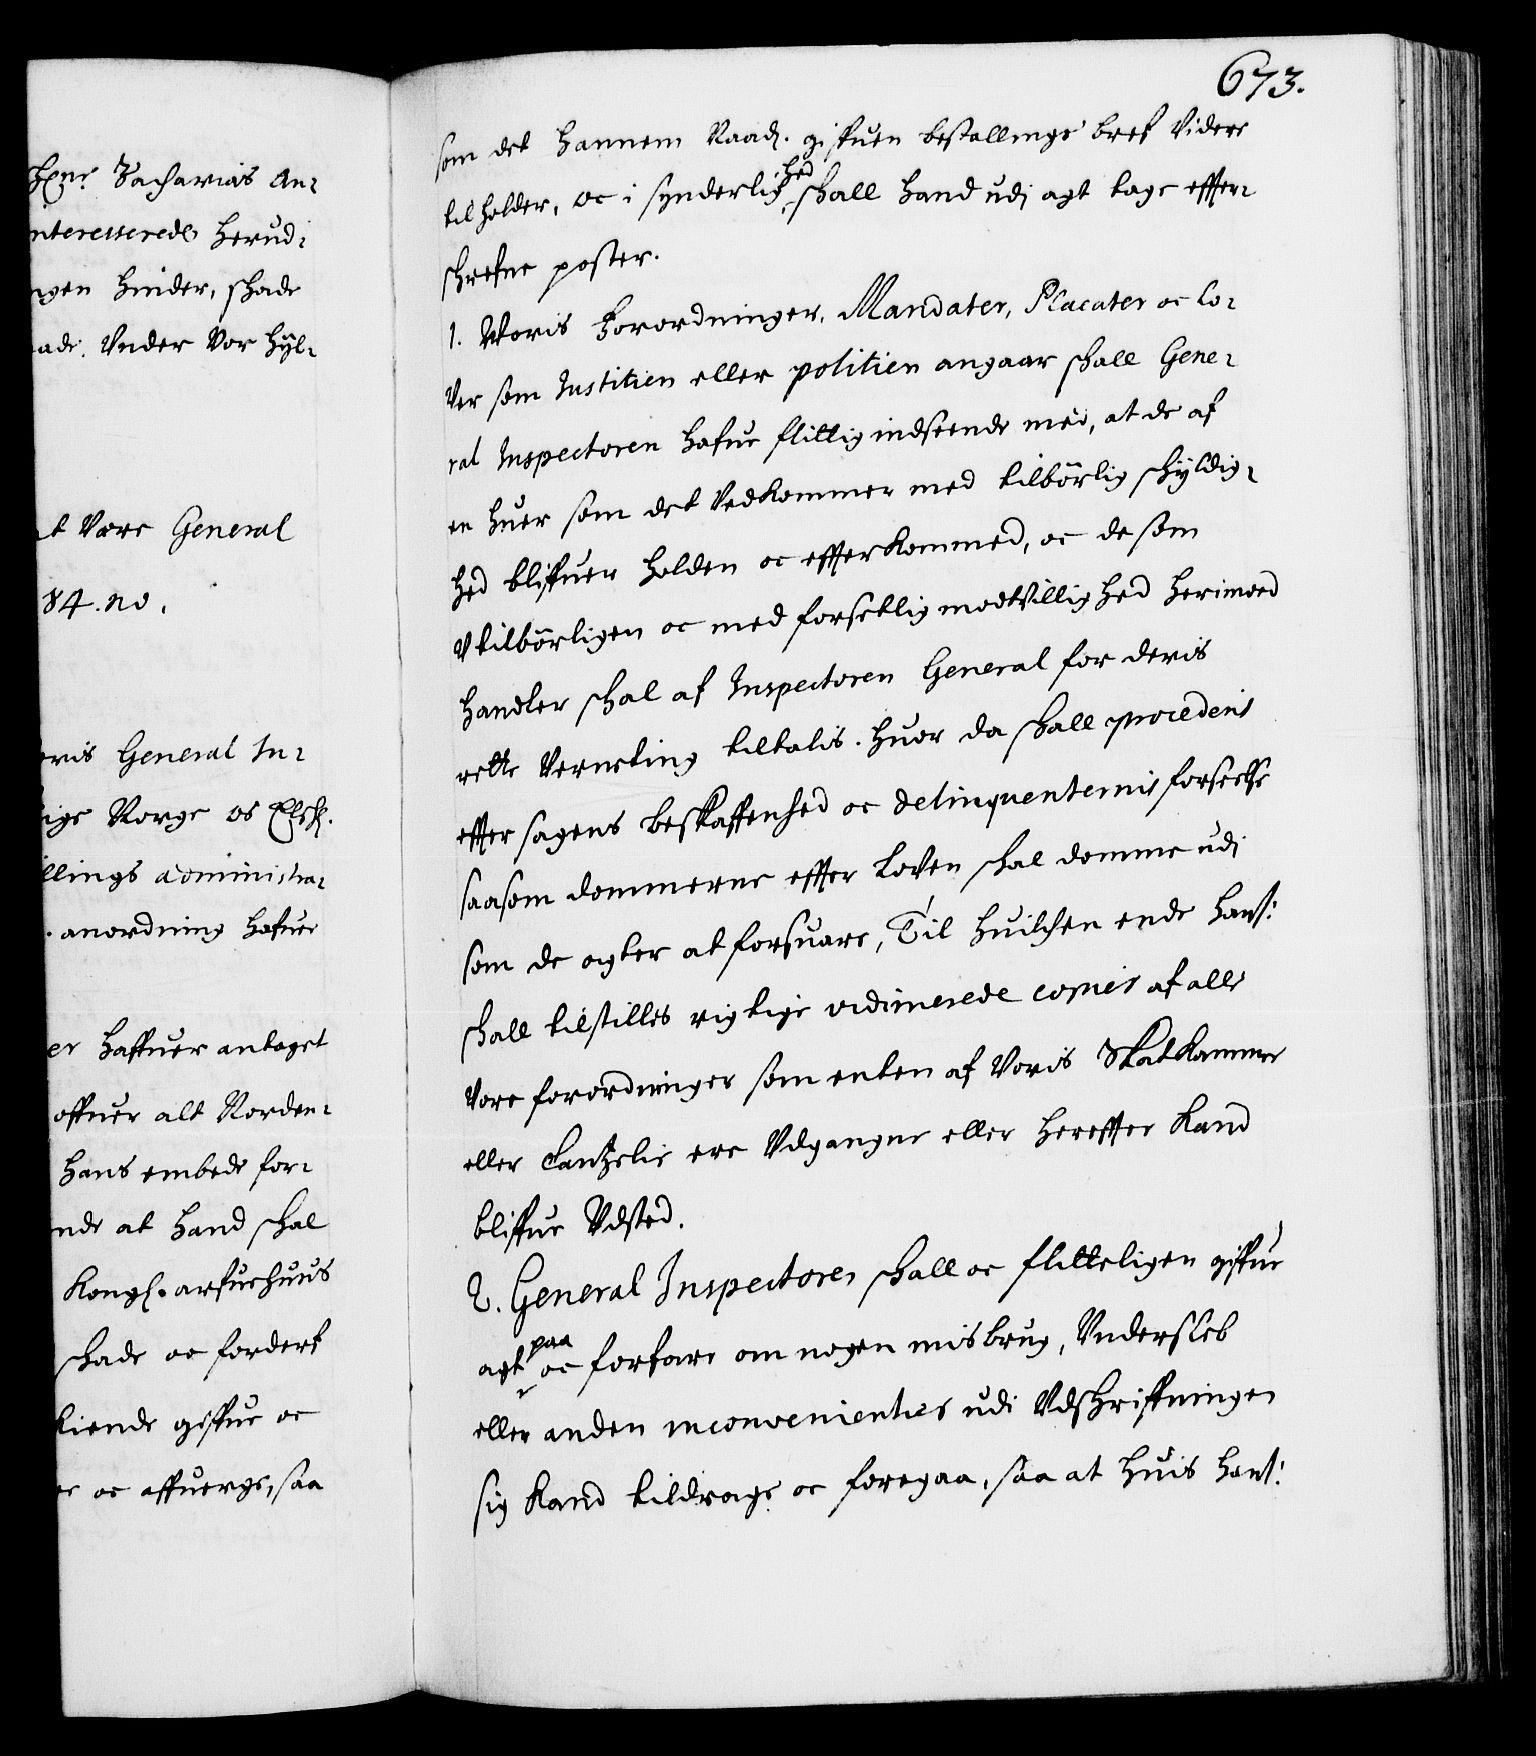 Zacharias An-
nteresserede herud-
ngen hinder, schade
aade. Vnder Vor Hyl-
t Være General
84. no.
oris General In-
ige Norge os Elsch.
llings administra-
. anordning hafue
er haffuer antaget
offuer alt Norden-
hans embede for-
nde at hand schal
Kongl. arfuehuus
schade oc fordert
kiende giffue oc
er oc affuerge, saa
673.
som det hannem Naad. gifuen bestallings bref Videre
tilholder, oc i synderlighed schall hand udj agt tage effter-
schrefne poster.
1. Woris forordninger, Mandater, Placater oc lo-
Ver som Justitien eller politien angaar schall Gene-
ral Inspectoren hafue flittig indseende med, at de af
en huer som det Vedkommer med tilbörlig schyldig-
hed bliffuer holden oc effterkommed, oc de som
Vtilbörligen oc med forsetlig modtvillighed herimoed
handler schal af Inspectoren General for deris
rette Verneting tiltalis. huor da schall procederis
effter sagens beskaffenhed oc delinquenternis forseelse
saasom dommerne effter loven schal domme udj
som de agter at forsuare, Til huilchen ende hans:
schall tilstilles rigtige vidimerede copier af alle
Vore forordninger som enten af Voris Skatkammer
eller Cantzelie ere Vdgangne eller hereffter kand
bliffue Vdsted.
2. General Inspectoren schall oc flitteligen giffue
agt paa oc forfare om nogen misbrug, Vndersleb
eller anden inconvenientier udi Vdschriffningen
sig kand tildrage oc foregaa, saa at huis hans: